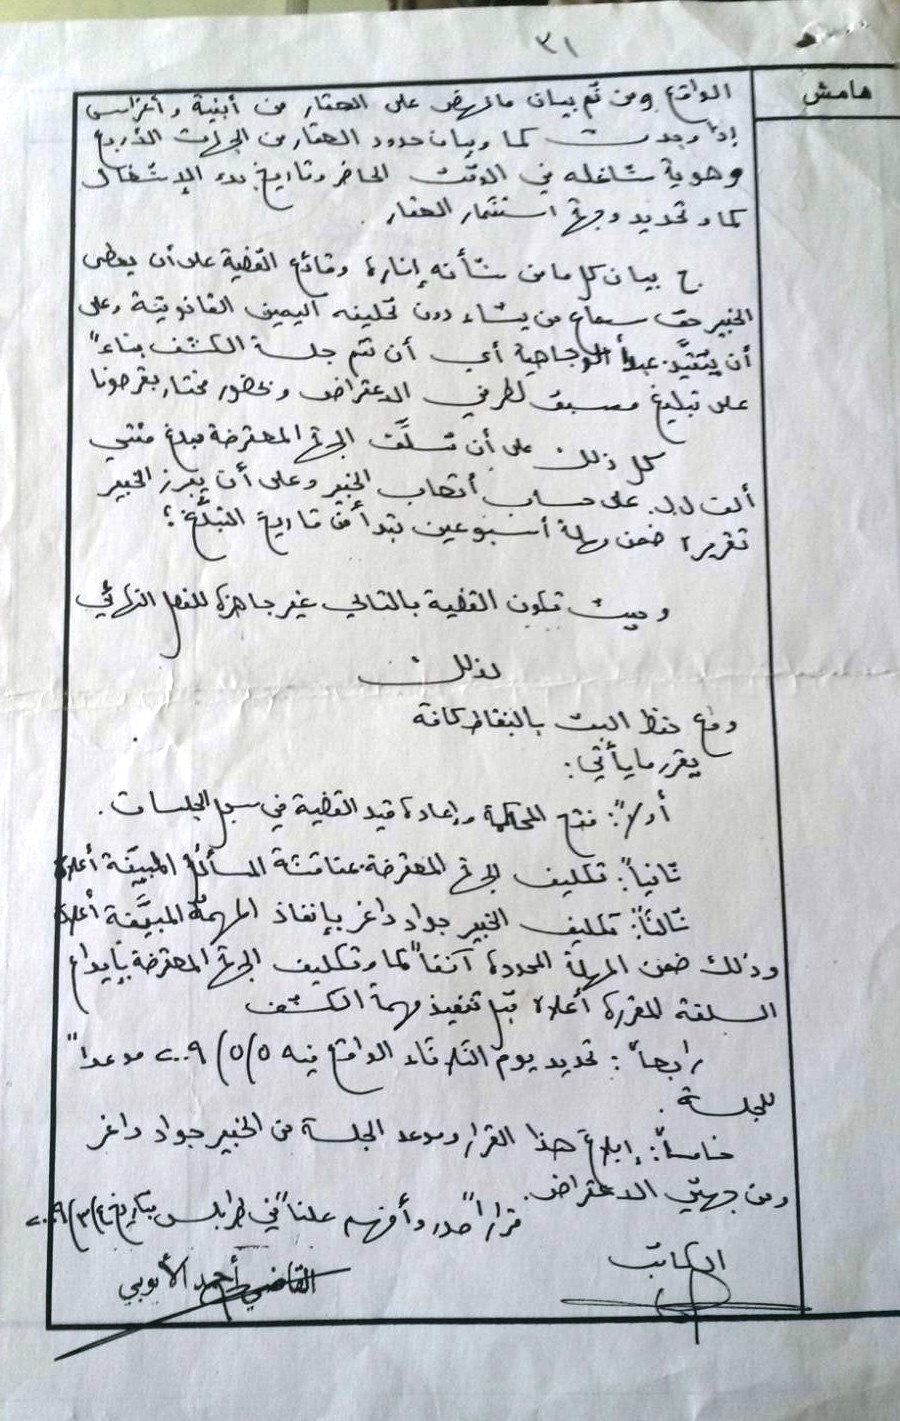 ٣١
هامش
الواقع ومن ثم بيان ما نهض على العقار من أبنية وأغراس
إذا وجدت كما وبيان حدود العقار من الجهات الأربع
وهوية شاغله في الوقت الحاضر وتاريخ بدء الإشغال
كما وتحديد وجهة استثمار العقار.
ج بيان كل ما من شأنه إنارة وقائع القضية على أن يعطى
الخبير حق سماع من يشاء دون تحليفه اليمين القانونية وعلى
أن يتقيَّد بمبدأ الوجاهية أي أن تتم جلسة الكشف بناءً
على تبليغ مسبق لطرفي الاعتراض وبحضور مختار بقرصونا
كل ذلك على أن تسلَّف الجهة المعترضة مبلغ مئتي
ألف ل.ل. على حساب أتعاب الخبير وعلى أن يبرز الخبير
تقريره ضمن مهلة أسبوعين تبدأ من تاريخ التبلُّغ؛
وحيث تكون القضية بالتالي غير جاهزة للفصل النهائي
لذلك
ومع حفظ البت بالنقاط كافة
يقرر ما يأتي:
أولاً: فتح المحاكمة وإعادة قيد القضية في سجل الجلسات.
ثانياً: تكليف الجهة المعترضة بمناقشة المسائل المبيّنة أعلاه
ثالثاً: تكليف الخبير جواد داغر بإنفاذ المهمّة المبيَّنة أعلاه
وذلك ضمن المهلة المحددة آنفاً كما وتكليف الجهة المعترضة بإيداع
السلفة المقررة أعلاه قبل تنفيذ مهمة الكشف
رابعاً: تحديد يوم الثلاثاء الواقع فيه ٥/٥/٢٠٠٩ موعداً
للجلسة.
خامساً: إبلاغ هذا القرار وموعد الجلسة من الخبير جواد داغر
ومن جهتي الاعتراض.
قراراً صدر وأفهم علناً في طرابلس بتاريخ ٢٤/٣/٢٠٠٩
الكاتب
القاضي أحمد الأيوبي